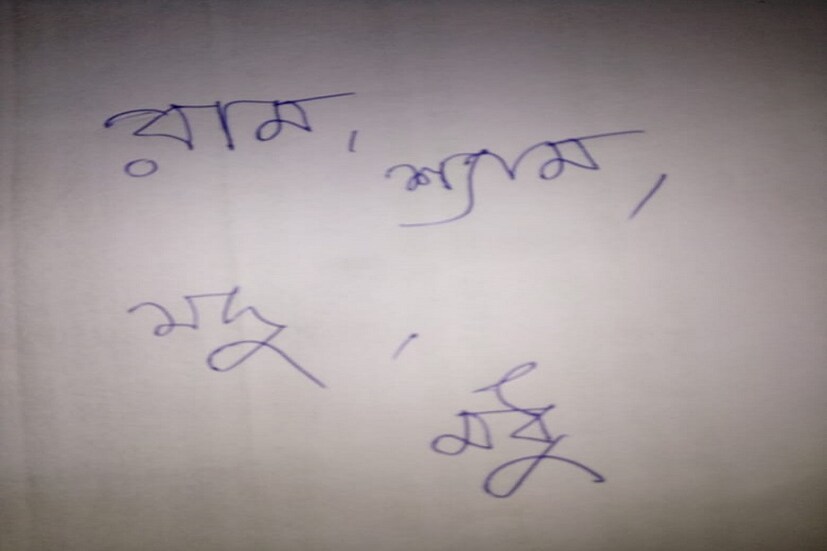 রাম, শ্যাম,
যদু, মধু